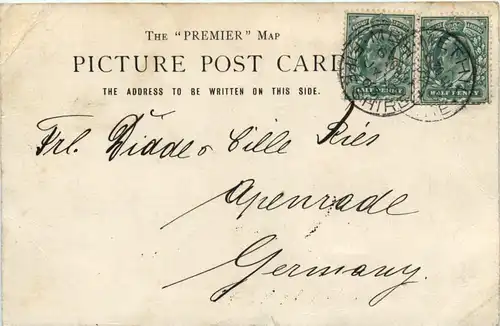 The "PREMIER" Map
PICTURE POST CARD
THE ADDRESS TO BE WRITTEN ON THIS SIDE.
HALFPENNY
HALFPENNY
Frl. Didde & Cille Ries
Apenrade
Germany.